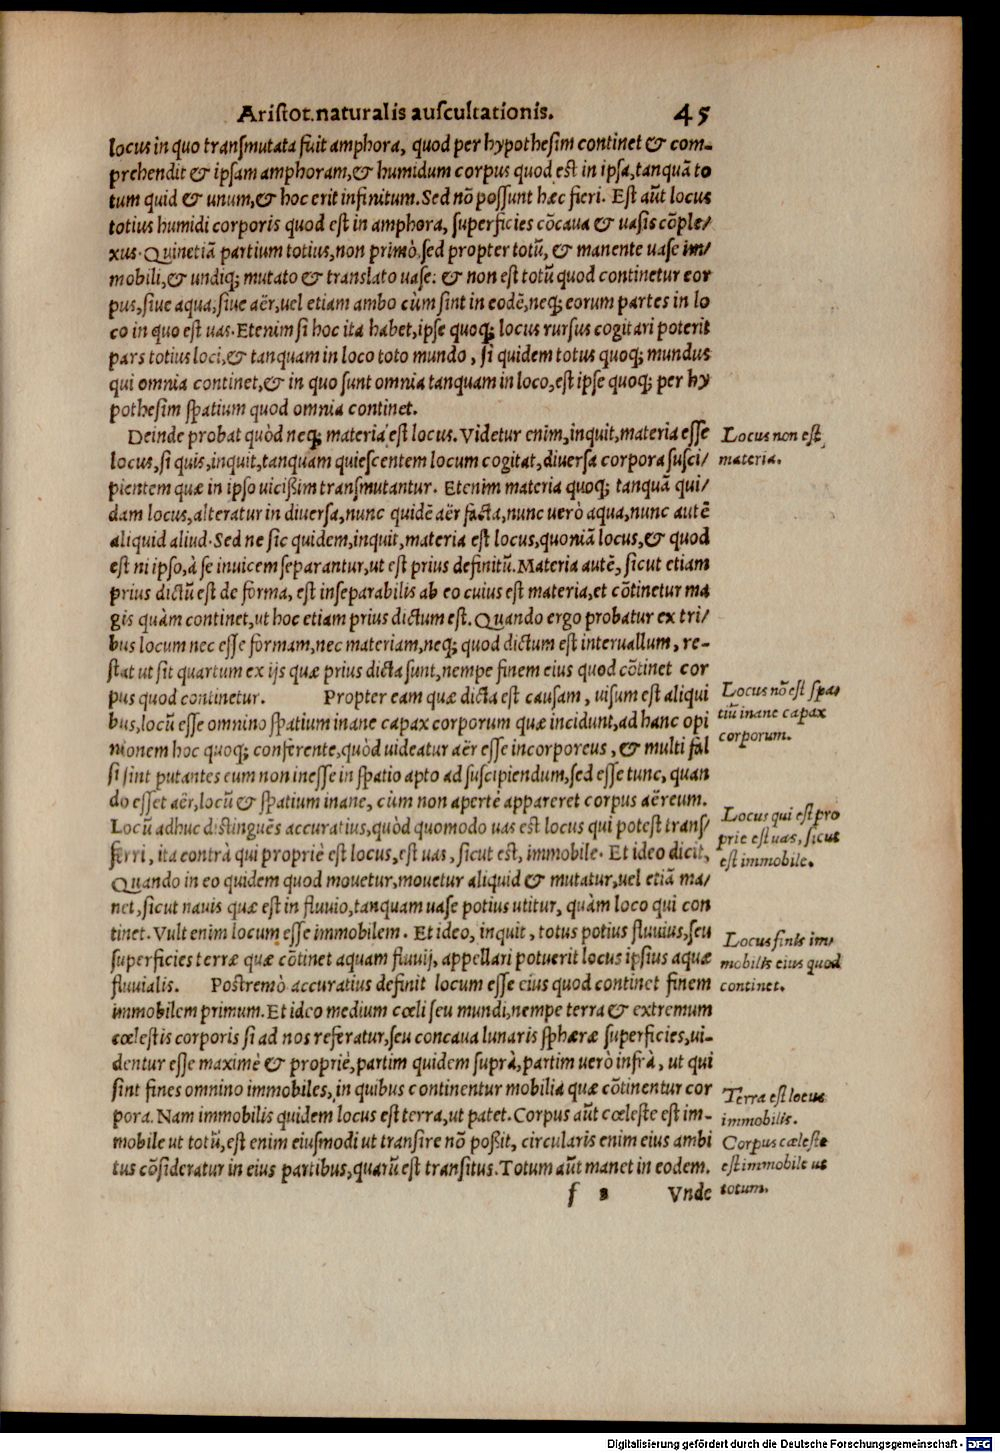 Aristot. naturalis auscultationis. 45
locus in quo transmutata fuit amphora, quod per hypothesim continet & com-
prehendit & ipsam amphoram, & humidum corpus quod est in ipsa, tanquã to
tum quid & unum, & hoc erit infinitum. Sed nõ possunt hæc fieri. Est aũt locus
totius humidi corporis quod est in amphora, superficies cõcaua & uasis cõple/
xus. Quinetiã partium totius, non primò sed propter totũ, & manente uase im/
mobili, & undiq; mutato & translato uase: & non est totũ quod continetur cor
pus, siue aqua, siue aër, uel etiam ambo cùm sint in eodẽ, neq; eorum partes in lo
co in quo est uas. Etenim si hoc ita habet, ipse quoq; locus rursus cogitari poterit
pars totius loci, & tanquam in loco toto mundo, si quidem totus quoq; mundus
qui omnia continet, & in quo sunt omnia tanquam in loco, est ipse quoq; per hy
pothesim spatium quod omnia continet.
Deinde probat quòd neq; materia est locus. Videtur enim, inquit, materia esse
Locus non est
locus, si quis, inquit, tanquam quiescentem locum cogitat, diuersa corpora susci/
materia.
pientem quæ in ipso uicißim transmutantur. Etenim materia quoq; tanquã qui/
dam locus, alteratur in diuersa, nunc quidẽ aër facta, nunc uerò aqua, nunc autẽ
aliquid aliud. Sed ne sic quidem, inquit, materia est locus, quoniã locus, & quod
est ni ipso, à se inuicem separantur, ut est prius definitũ. Materia autẽ, sicut etiam
prius dictũ est de forma, est inseparabilis ab eo cuius est materia, et cõtinetur ma
gis quàm continet, ut hoc etiam prius dictum est. Quando ergo probatur ex tri/
bus locum nec esse formam, nec materiam, neq; quod dictum est interuallum, re-
stat ut sit quartum ex ijs quæ prius dicta sunt, nempe finem eius quod cõtinet cor
pus quod continetur. Propter eam quæ dicta est causam, uisum est aliqui
Locus nõ est spa/
bus, locũ esse omnino spatium inane capax corporum quæ incidunt, ad hanc opi
tiũ inane capax
nionem hoc quoq; conferente, quòd uideatur aër esse incorporeus, & multi fal
corporum.
si sint putantes eum non inesse in spatio apto ad suscipiendum, sed esse tunc, quan
do esset aër, locũ & spatium inane, cùm non apertè appareret corpus aëreum.
Locũ adhuc distinguẽs accuratius, quòd quomodo uas est locus qui potest trans/
Locus qui est pro
prie est uas, sicut
ferri, ita contrà qui propriè est locus, est uas, sicut est, immobile. Et ideo dicit,
est immobile.
Quando in eo quidem quod mouetur, mouetur aliquid & mutatur, uel etiã ma/
net, sicut nauis quæ est in fluuio, tanquam uase potius utitur, quàm loco qui con
tinet. Vult enim locum esse immobilem. Et ideo, inquit, totus potius fluuius, seu
Locus finis im/
superficies terræ quæ cõtinet aquam fluuij, appellari potuerit locus ipsius aquæ
mobilis eius quod
fluuialis. Postremò accuratius definit locum esse eius quod continet finem
continet.
immobilem primum. Et ideo medium cœli seu mundi, nempe terra & extremum
cœlestis corporis si ad nos referatur, seu concaua lunaris sphæræ superficies, ui-
dentur esse maximè & propriè, partim quidem suprà, partim uerò infrà, ut qui
sint fines omnino immobiles, in quibus continentur mobilia quæ cõtinentur cor
Terra est locus
pora. Nam immobilis quidem locus est terra, ut patet. Corpus aũt cœleste est im-
immobilis.
mobile ut totũ, est enim eiusmodi ut transire nõ poßit, circularis enim eius ambi
Corpus cæleste
tus cõsideratur in eius partibus, quarũ est transitus. Totum aũt manet in eodem.
est immobile ut
totum.
f 3 Vnde
Digitalisierung gefördert durch die Deutsche Forschungsgemeinschaft - DFG